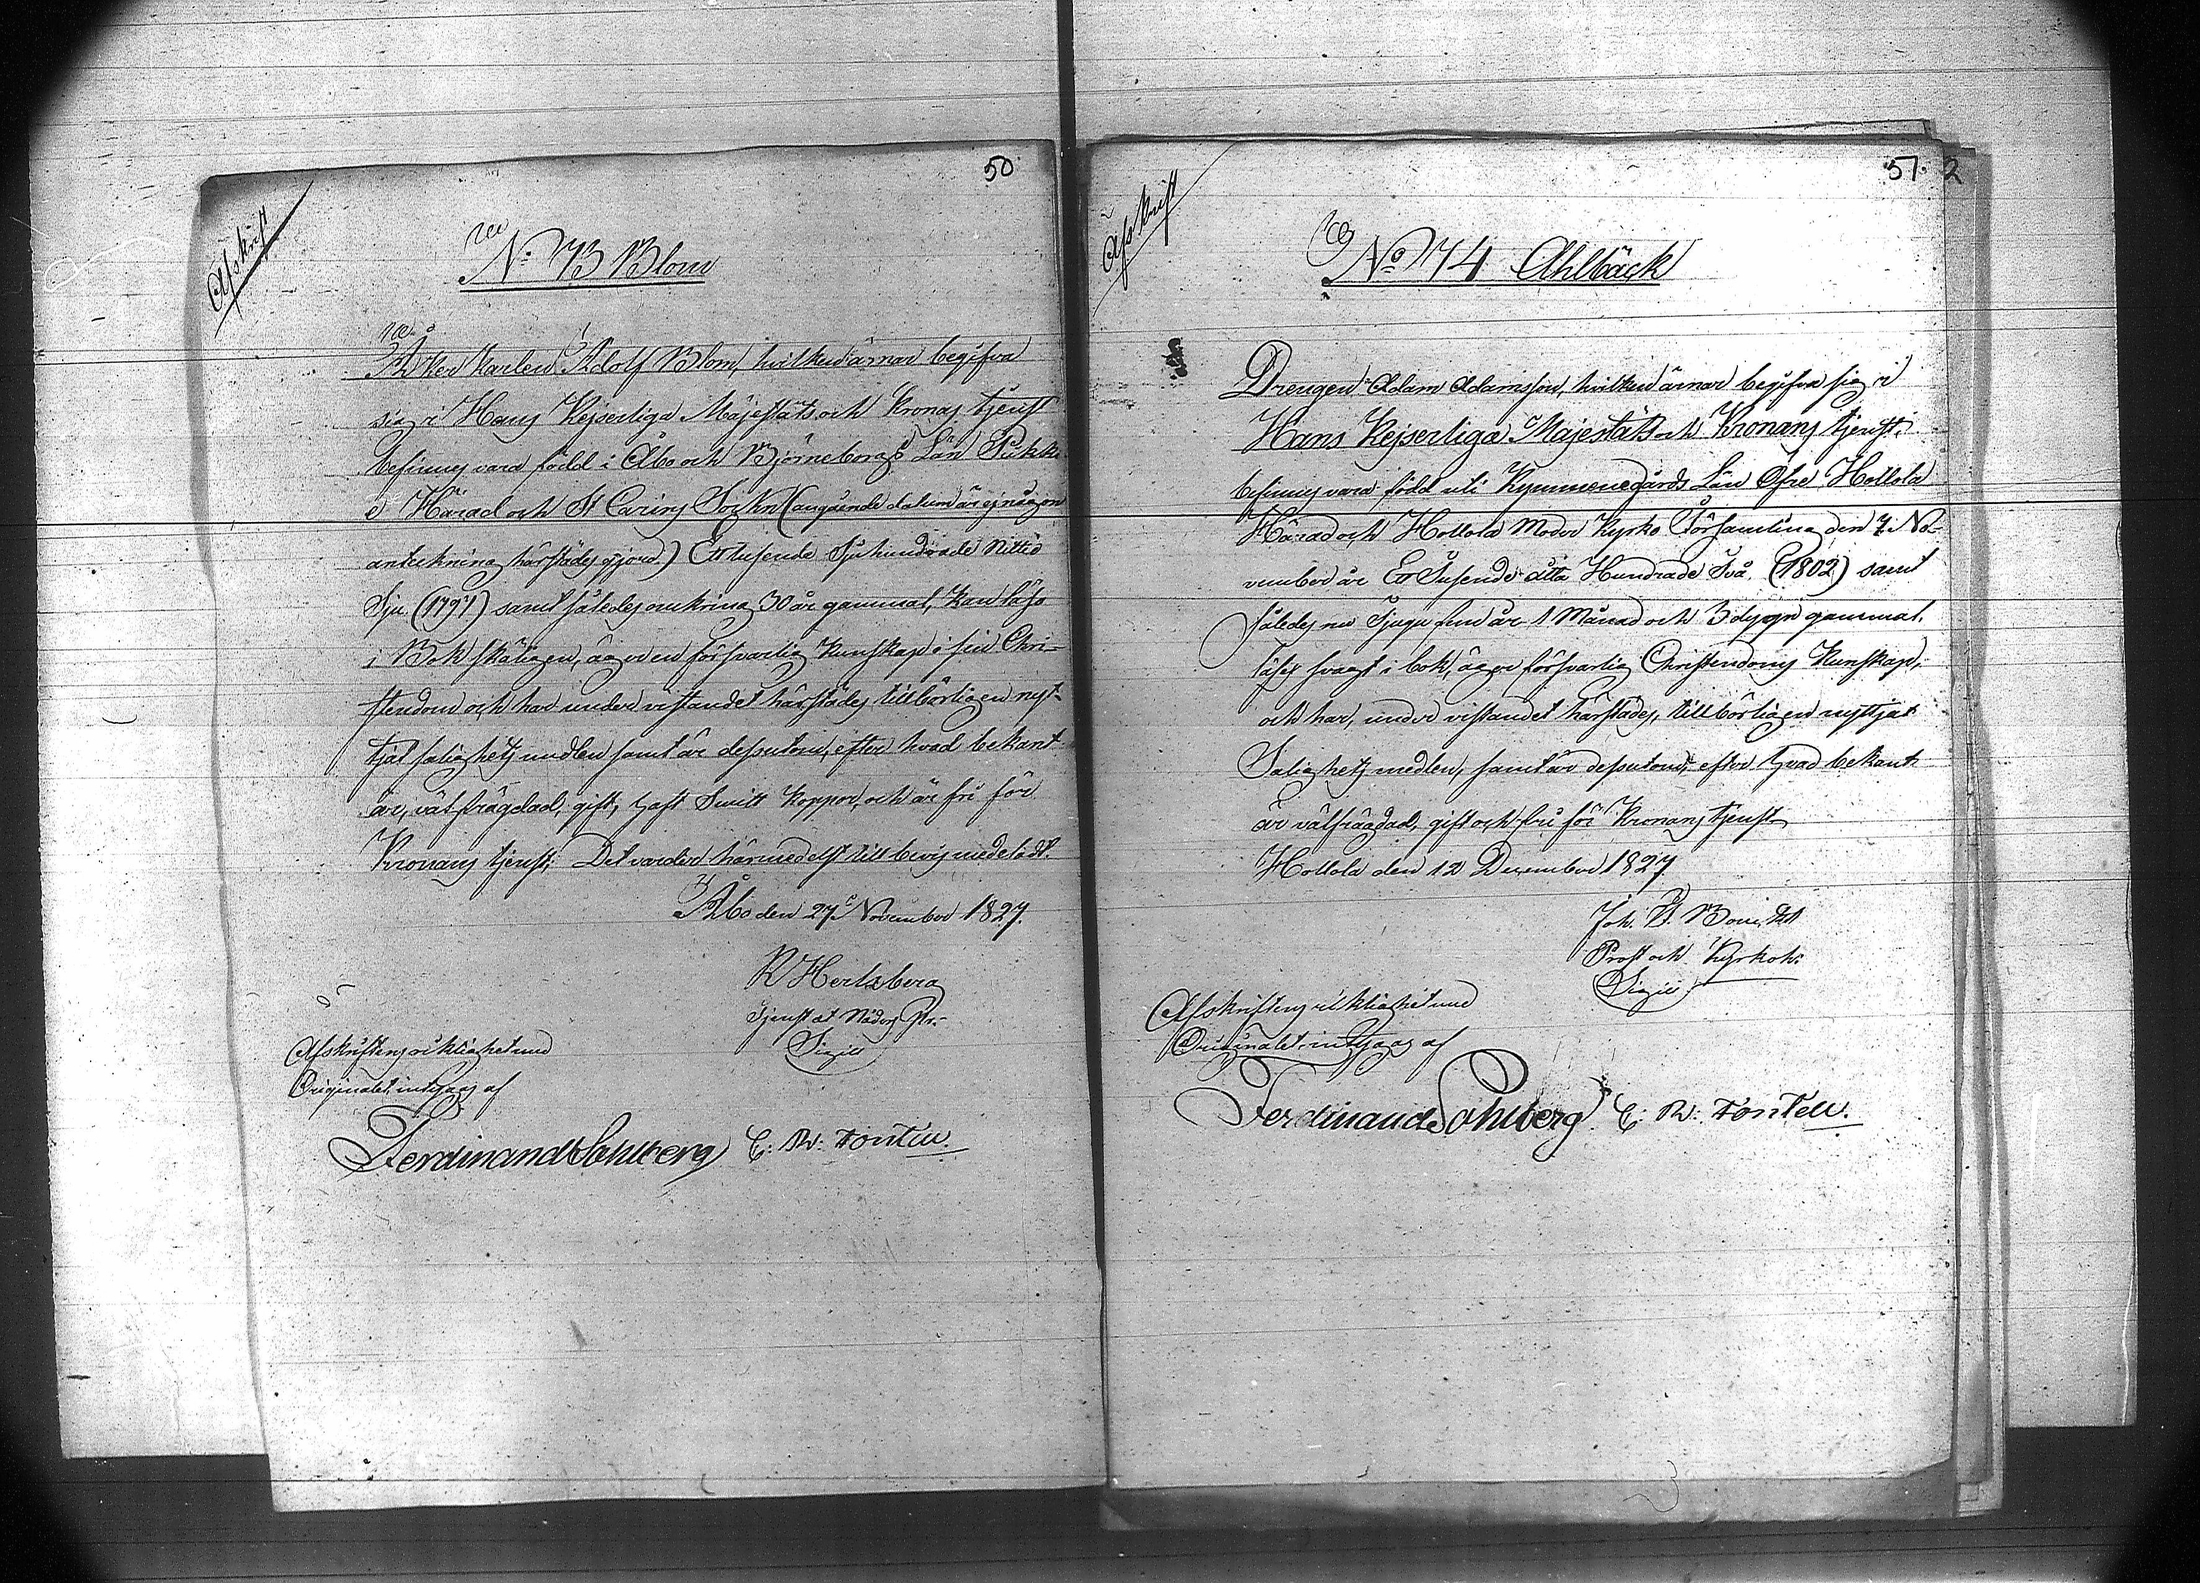 50
Afskrift
No 73 Blom
Åker Karlen Adolf Blom, hvilken ärnar begifva
sig i Hans Kejserliga Majestäts och Kronas tjenst
befinnes vara född i Åbo och Björneborgs Län Pikki
e Härad och St Carins Sockn (angående datum är ej någon
anteckning härstädes gjord) Ett tusende Sjuhundrade Nittio
Sju (1797) samt således omkring 30 år gammal, kan läsa
i Bok skäligen, äger en försvarlig kunskap i sin Chri-
stendom och har under vistandet härstädes tillbörligen nyt-
tjat salighets medlen samt är dessutom, efter hvad bekant
är, välfrägdad, gift, haft Smitt koppor, och är fri för
Kronans tjenst; Det varder härmedelst till bevis meddeladt.
Åbo den 27 November 1827.
R Hertzberg
Tjenst at Nådårs Pr.
Sigill
Afskriftens riktighet med
Originalet intygas af
Ferdinand Sohlberg C: W: Fontell.
51. 2
Afskrift
No 74 Ahlbäck
Drengen Adam Adamsson, hvilken ärnar begifva sig i
Hans Kejserliga Majestäts och Kronans tjenst,
befinnes vara född uti Kymmenegårds Län Öfre Hollola
Härad och Hollola Moder Kyrko Församling den 7 No-
vember år Ett Tusende åtta Hundrade Två (1802) samt
således nu Tjugu fem år 1 Månad och 3 dygn gammal.
läser svagt i bok, äger försvarlig Christendoms Kunskap,
och har, under vistandet härstädes, tillbörligen nyttjat
Salighets medlen, samt är dessutom, efter hvad bekant
är välfrägdad, gift och fri för Kronans tjenst
Hollola den 12 December 1827
Joh.
Prost och Kyrkoh:
Sigill
Afskriftens riktighet med
Originalet intygas af
Ferdinand Sohlberg C: W: Fontell.